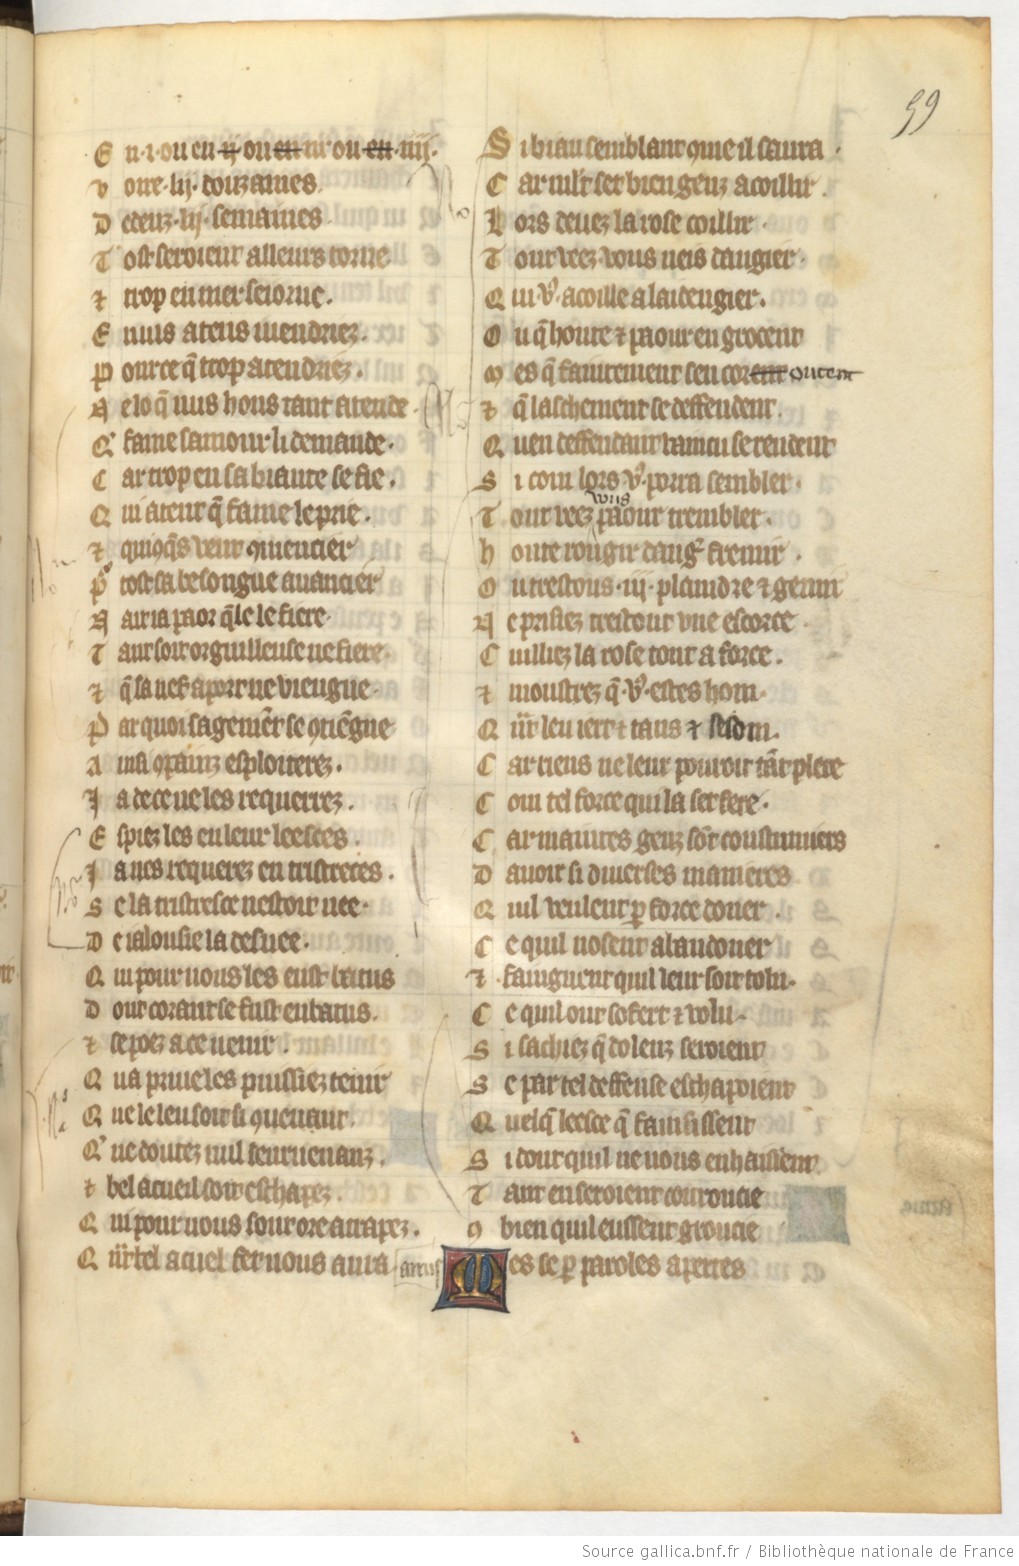 59
E n .i. ou en ij ou en iii ou en .iiij.
v oire .lij. douzaines
D edenz .lij. semaines
T ost seroient alleurs torne
⁊ trop en iner seiorne.
E nuis a tens i uendriez.
P our ce q̃ trop atendriez.
N e lo q̃ nus hons tant atende
Q' fame samour li demande.
C ar trop en sa biaute se fie.
Q ui atent q̃ fame le prie.
⁊ quiq̃s veut 9mencier
P' tost sa besongne auancier
N ait ia paor q̃le le fiere
T ant soit orguilleuse ne fiere
⁊ q̃ sa nef a port ne viengne
P ar quoi sagemẽt se 9tiẽgne
A insi 9painz esploiterez.
J a de ce ne les requerrez.
E spiez les en leur leesces
J a nes requerez en tristreces.
S e la tristresce nestoit nee
D e ialousie la desuee.
Q ui pour uous les eust batus
D ont corant se fust enbatus.
⁊ se poez a ce uenir.
Q ua priue les puissiez tenir
Q ue le leu soit si 9uenant.
Q' ne doutez nul seuruenanz.
⁊ bel acueil soit eschapez.
Q ui pour uous sont ore atrapez.
Q ñt bel acuel fet uous aura
S i biau semblant 9me il saura.
C ar mlt set bien genz acoillir.
L ors deuez la rose coillir.
T out veez vous neis dangier.
Q ui v9 acoille a laidengier.
O u q̃ honte ⁊ paour en grocent
M es q̃ faintement seu corecent
⁊ q̃ laschement se deffendent.
Q uen deffendant vaincu se rendent
S i com lors v9 porra sembler.
vous
T out veez paour trembler.
h onte rougir dang' fremir.
O u trestous .iij. plaindre ⁊ gemir
N e prisiez trestout vne escorce
C uilliez la rose tout a force.
⁊ moustrez q̃ v9 estes hom.
Q ñt leu iert ⁊ tans ⁊ seson.
C ar riens ne leur pouroit tãt plere
C om tel force qui la set fere.
C ar maintes genz sõt coustumiers
D auoir si diuerses manieres
Q uil veulent p force doner.
C e quil nosent abandoner
⁊ faingnent quil leur soit tolu.
C e quil ont sofert ⁊ volu.
S i sachiez q̃ dolenz seroient
S e par tel deffense eschapoient
Q uelq̃ leesce q̃ fainsissent
S i dout quil ne uous enhaissent
T ant en seroient couroucie
9 bien quil eussent groucie
M es se p paroles apertes
Source gallica.bnf.fr / Bibliothèque nationale de France